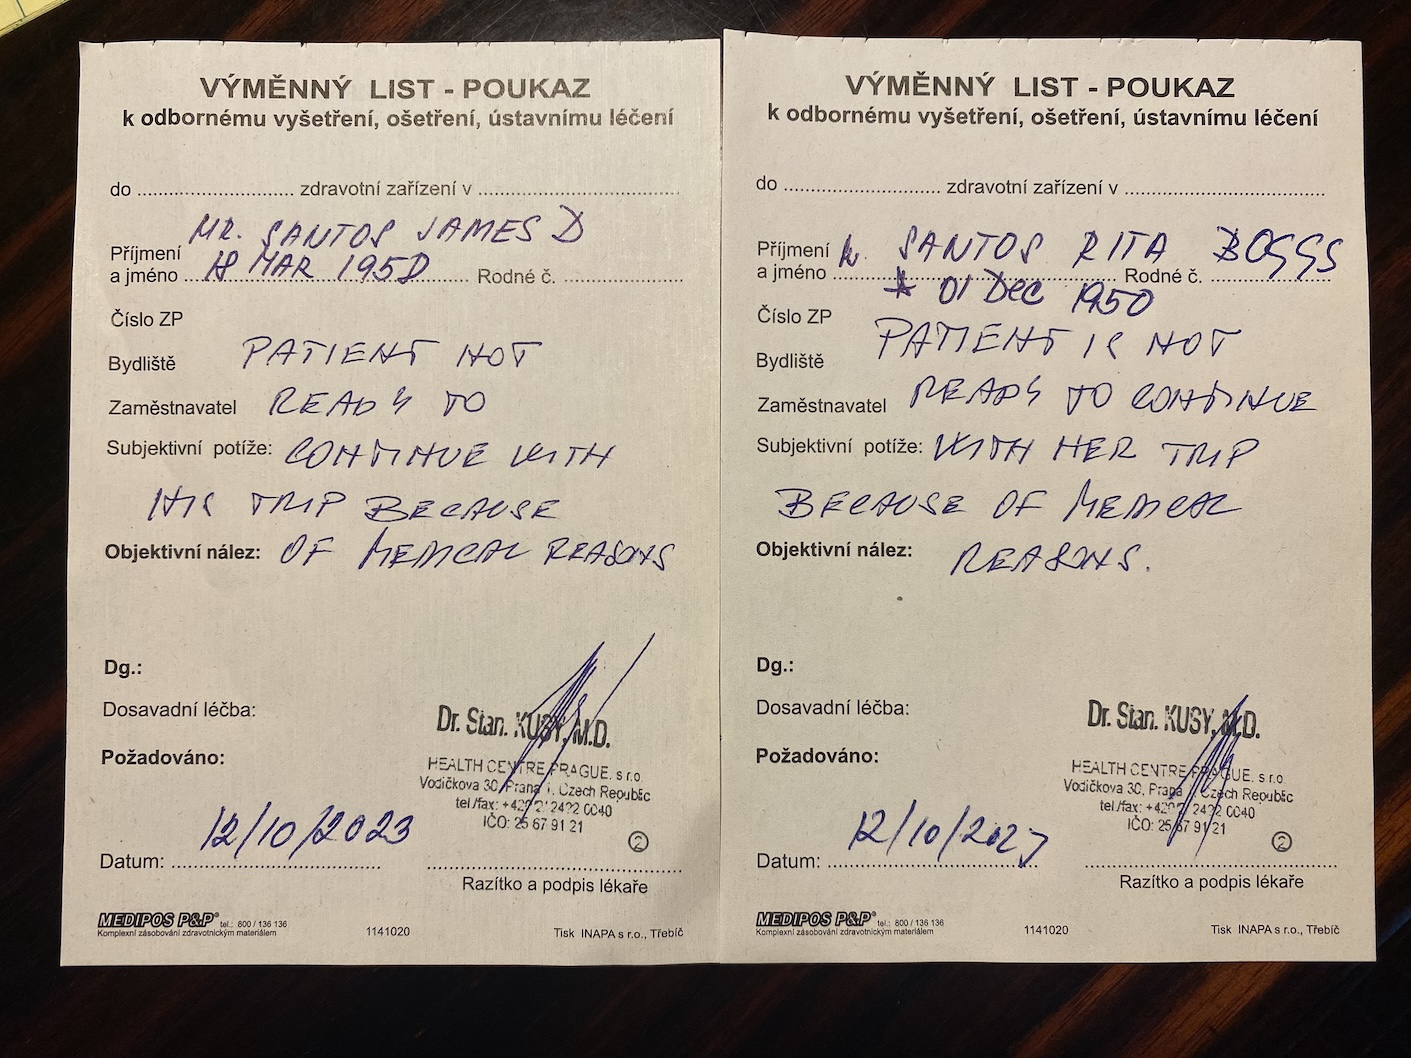 VÝMĚNNÝ LIST - POUKAZ
k odbornému vyšetření, ošetření, ústavnímu léčení
do ............................ zdravotní zařízení v ....................................
MR. SANTOS JAMES D
Příjmení
a jméno 18 MAR 1950 Rodné č. .....................
Číslo ZP
Bydliště PATIENT NOT
Zaměstnavatel READY TO
Subjektivní potíže: CONTINUE WITH
HIS TRIP BECAUSE
Objektivní nález: OF MEDICAL REASONS
Dg.:
Dosavadní léčba:
Dr. Stan. KUSY, M.D.
Požadováno:
HEALTH CENTRE PRAGUE, s r.o.
Vodičkova 30, Praha 1, Czech Republic
tel./fax: +420 2 2422 0040
IČO: 25 67 91 21
2
12/10/2023
Datum: ....................................
Razítko a podpis lékaře
MEDIPOS P&P® tel.: 800 / 136 136
Komplexní zásobování zdravotnickým materiálem
1141020
Tisk INAPA s r.o., Třebíč
VÝMĚNNÝ LIST - POUKAZ
k odbornému vyšetření, ošetření, ústavnímu léčení
do ............................ zdravotní zařízení v ....................................
Příjmení SANTOS RITA BOGGS
a jméno .................................... Rodné č. .....................
* 01 Dec 1950
Číslo ZP
PATIENT IS NOT
Bydliště
Zaměstnavatel READY TO CONTINUE
Subjektivní potíže: WITH HER TRIP
BECAUSE OF MEDICAL
Objektivní nález: REASONS.
Dg.:
Dosavadní léčba:
Dr. Stan. KUSY, M.D.
Požadováno:
HEALTH CENTRE PRAGUE, s r.o.
Vodičkova 30, Praha Czech Republic
tel./fax: +420 2 2422 0040
IČO: 25 67 91 21
2
12/10/2023
Datum: ....................................
Razítko a podpis lékaře
MEDIPOS P&P® tel.: 800 / 136 136
Komplexní zásobování zdravotnickým materiálem
1141020
Tisk INAPA s r.o., Třebíč